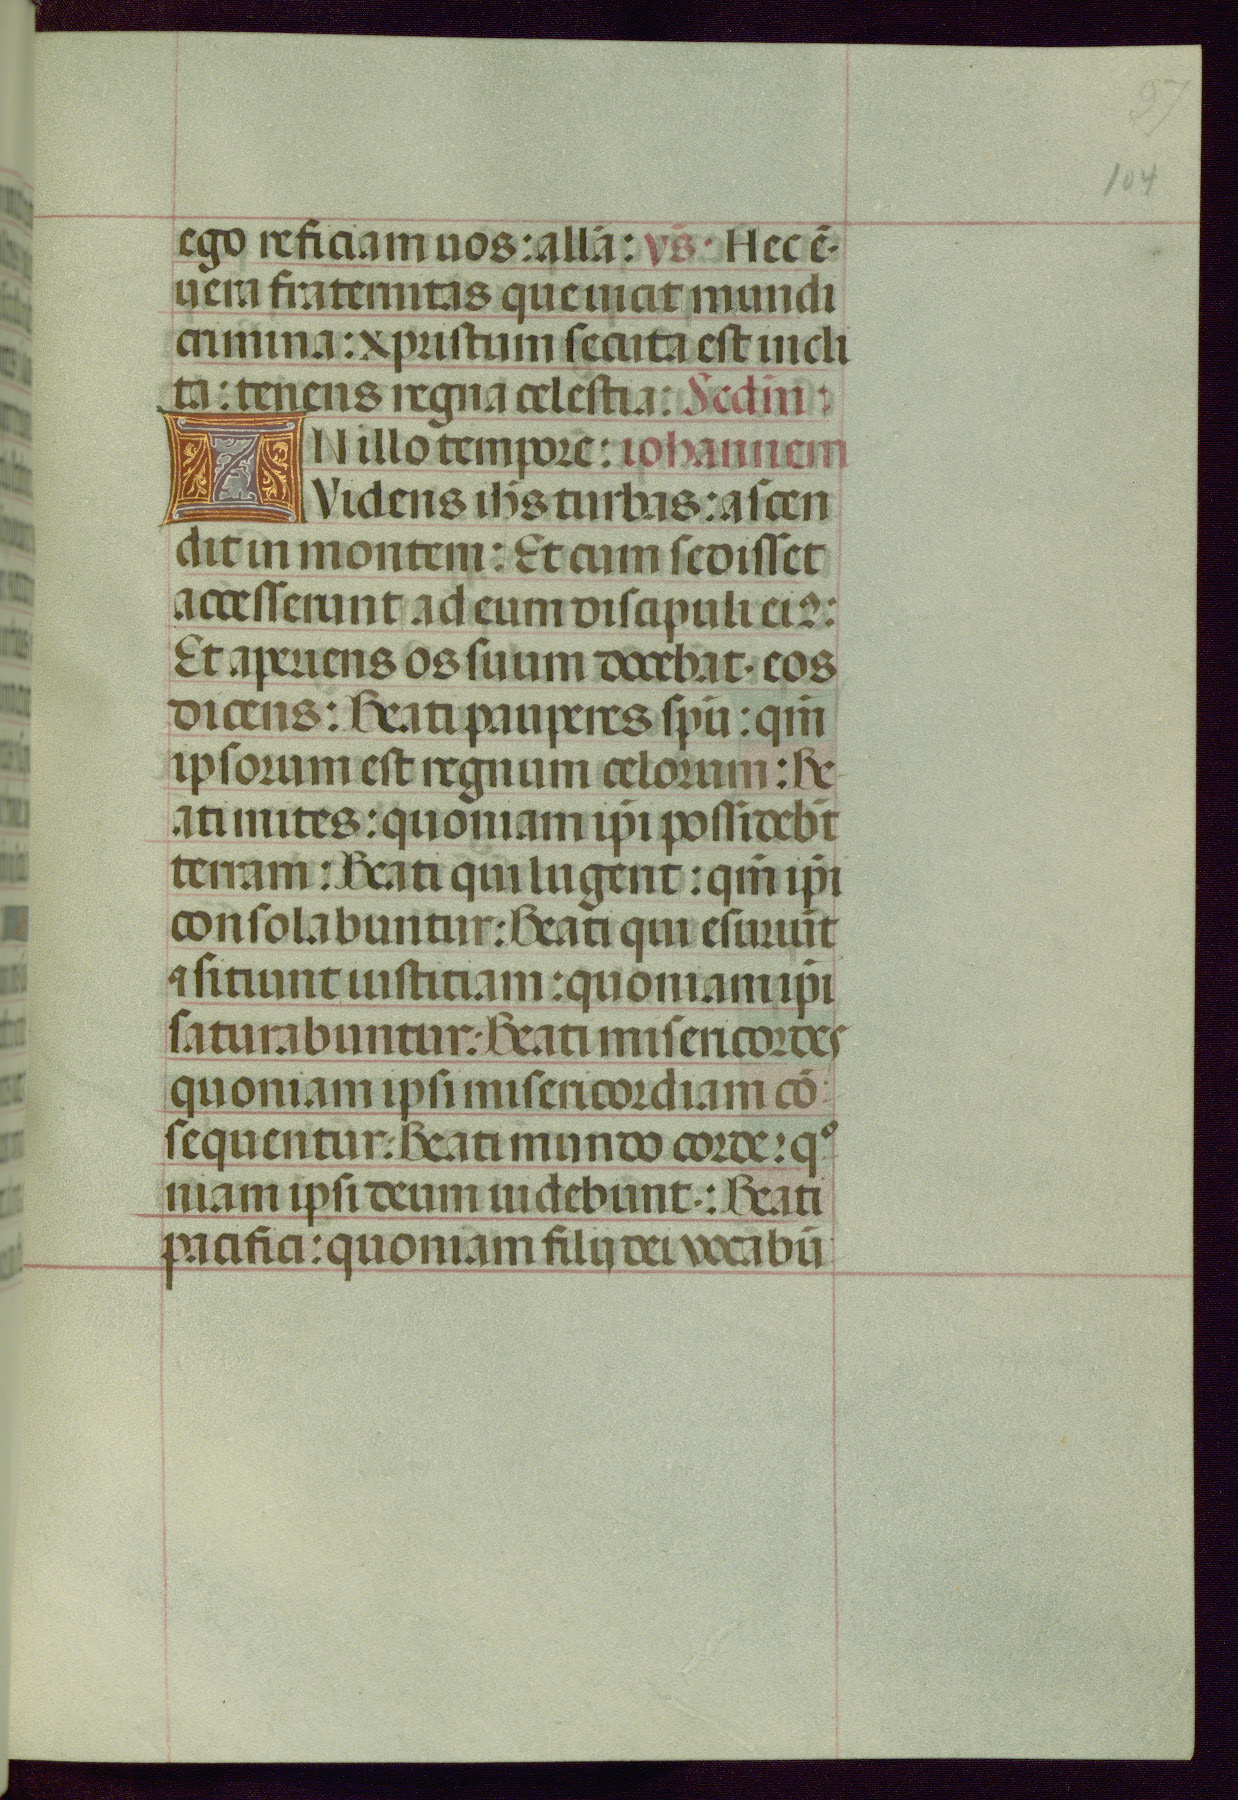 97
104
ego reficiam uos: allã: vs̃· Hec ẽ·
uera fraternitas que uicit mundi
crimina: xpristum secuta est incli
ta: tenens regna celestia: Sedm̃:
IN illo tempore: iohannem
Videns ihs̃ turbas: ascen
dit in montem: Et cum sedisset
accesserunt ad eum discipuli eiꝰ:
Et aperiens os suum docebat· eos
dicens: Beati pauperes spũ: qm̃
ipsorum est regnum celorum: Be-
ati mites: quoniam ip̃i possidebt̃
terram: Beati qui lugent: qm̃ ip̃i
consolabuntur: Beati qui esuriũt
⁊ sitiunt iustitiam: quoniam ip̃i
saturabuntur: Beati misericordes
quoniam ipsi misericordiam cõ
sequentur: Beati mundo corde: qº
niam ipsi deum uidebunt·: Beati
pacifici: quoniam filij dei vocabũ